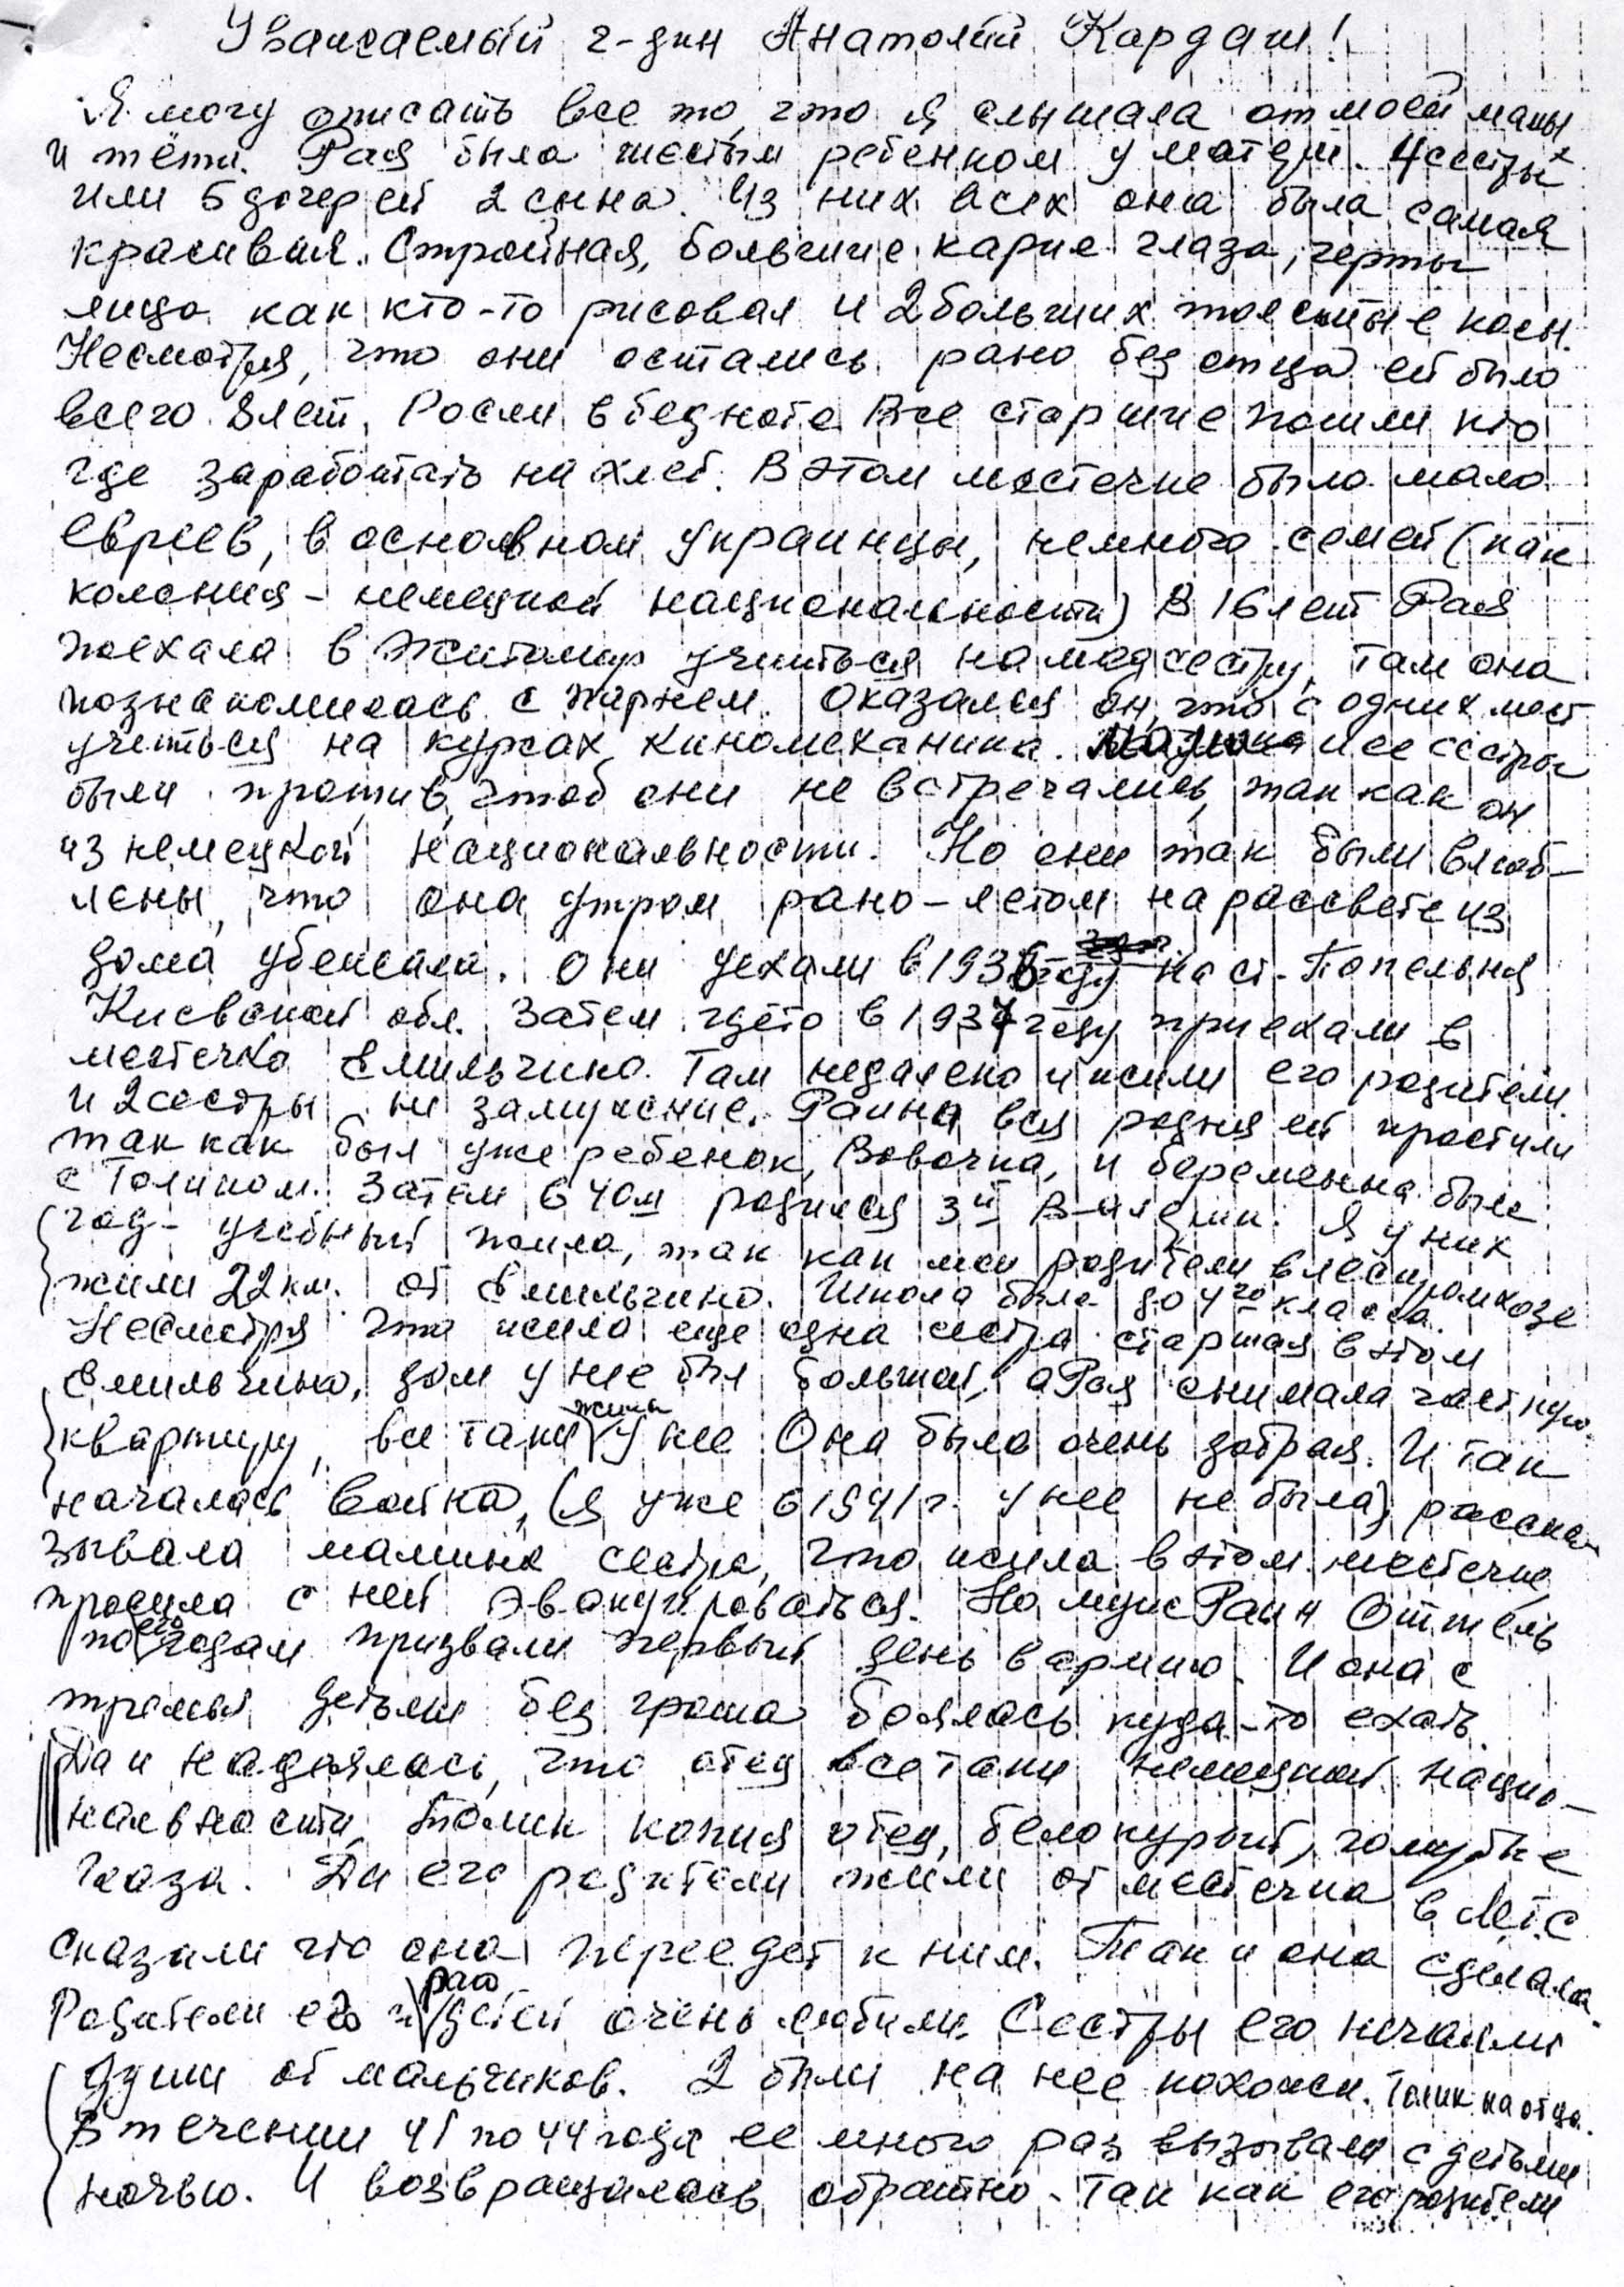 Уважаемый г-дин Анатолий Кардаш!
Я могу описать все то, что я слышала от моей мамы
и тёти. Рая была шестым ребенком у матери. 4 сестры
или 5 дочерей 2 сына. Из них всех она была самая
красивая. Стройная, большие карие глаза, черты
лица как кто-то рисовал и 2 больших толстые косы.
Несмотря, что они остались рано без отца ей было
всего 8 лет. Росли в бедноте Все старшие пошли кто
где заработать на хлеб. В этом местечке было мало
евреев, в основном украинцы, немного семей (как
колония - немецкой национальности) В 16 лет Рая
поехала в Житомир учиться на медсестру, там она
познакомилась с парнем. Оказался он, что с одних мест
учиться на курсах киномеханика. и ее сестры
были против, чтоб они не встречались, так как он
из немецкой национальности. Но они так были влюб-
лены, что она утром рано - летом на рассвете из
дома убежала. Они уехали в 1936 году на ст. Попельня
Киевской обл. Затем где то в 1937 году приехали в
местечко Емильчино. Там недалеко и жили его родители
и 2 сестры не замужние. Раина вся родня ей простили
так как был уже ребенок, Вовочка, и беременна была
с Толиком. Затем в 40м родился 3й Валерик. Я у них
год - учебный жила, так как мои родители в леспромхозе
жили 22 км. от Емильчино. Школа была до 4го класса.
Несмотря что жила еще одна сестра старшая в этом
Емильчино, дом у нее был большой, а Рая снимала частную
квартиру, все таки жила у нее Она была очень добрая. И так
началась война, (я уже в 1941 г. у нее не была) расска-
зывала мамина сестра, что жила в этом местечке,
просила с ней эвакуироваться. Но муж Раи
по его годам призвали первый день в армию. И она с
тремья детьми без гроша боялась куда-то ехать.
Да и надеялась, что отец все таки немецкой нацио-
нальности, Толик копия отец, белокурый, голубые
глаза. Да его родители жили от местечка в МТС
сказали что она переедет к ним. Так и она сделала.
Родители его Раю и детей очень любили. Сестры его нечаяли
души от мальчиков. 2 были на нее похожи. Толик на отца.
В течении 41 по 44 года ее много раз вызывали с детьми
ночью. И возвращалась обратно. Так как его родители